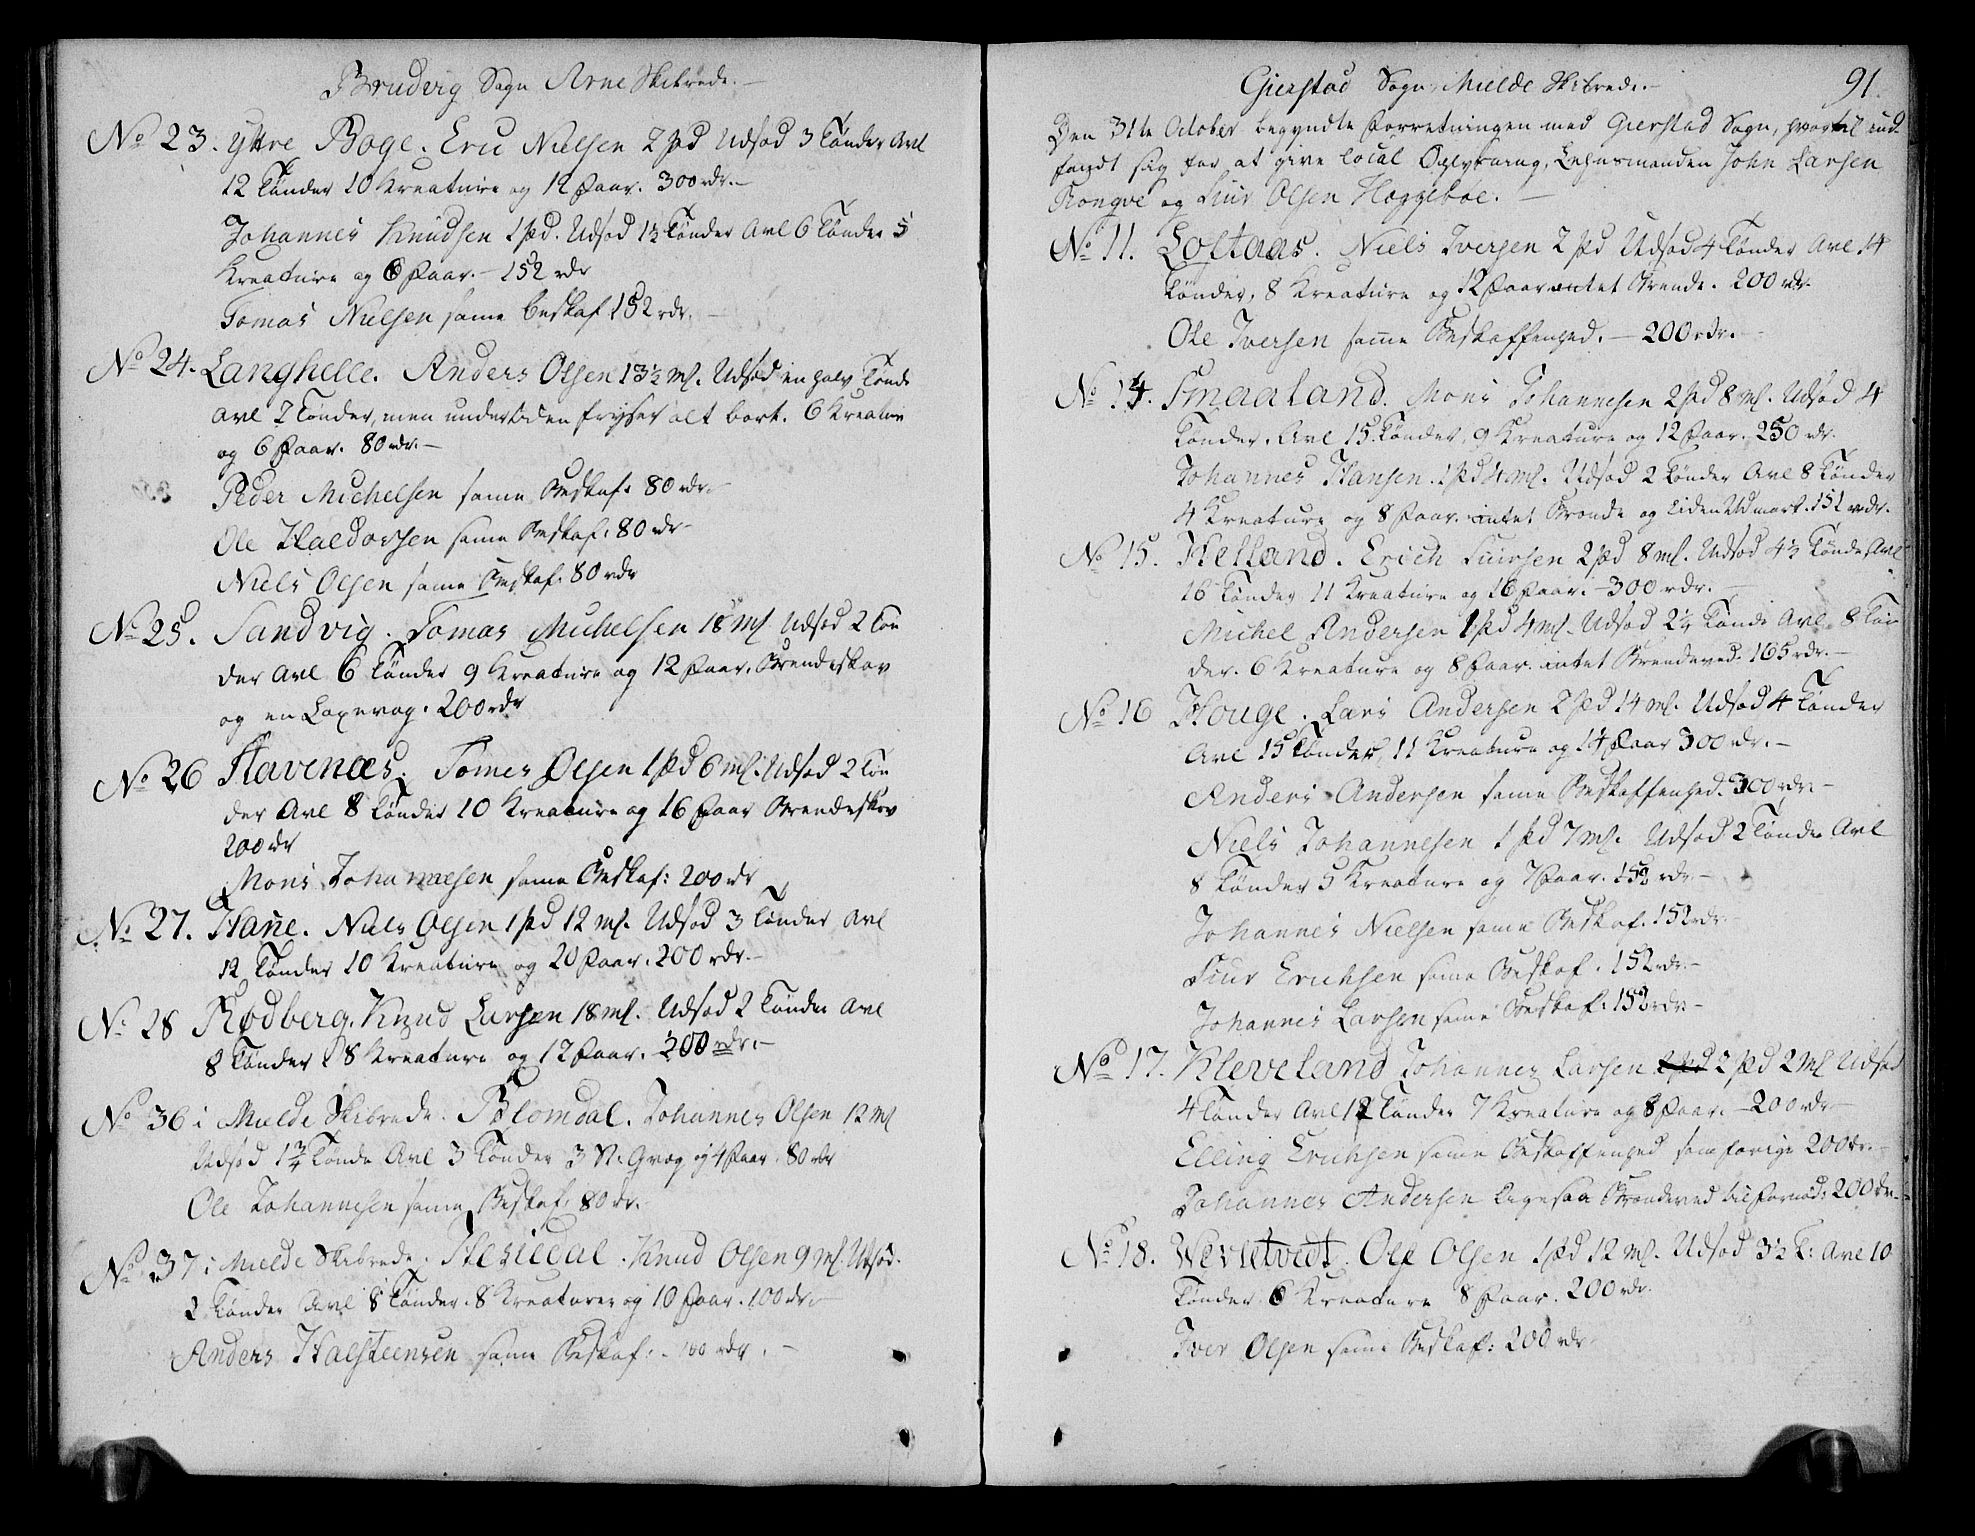 Bruvig Sogn Arne Skibrede.
No 23. Yttre Boge. Eric Nielsen 2 pd Udsæd 3 Tønder Avl
12 Tønder 10 Kreature og 12 Faar. 300 rdr.
Johannes Knudsen 1 pd. Udsæd 1½ Tønder Avl 6 Tønder 5
Kreature og 6 Faar. 152 rdr
Tomas Nielsen same beskaf 152 rdr.
No 24. Langhelle. Anders Olsen 13½ mk. Udsæd en halv Tønde
Avl 2 Tønder, men undertiden fryser alt bort. 6 Kreature
og 6 Faar. 80 rdr.
Peder Michelsen same Beskaf: 80 rdr.
Ole Haldorsen same Beskaf: 80 rdr
Niels Olsen same Beskaf. 80 rdr
No 25. Sandvig. Tomas Michelsen 18 mk Udsæd 2 Tøn
der Avl 6 Tønder 9 Kreature og 12 Faar. Brendeskov
og en Laxevag. 200 rdr
No 26 Stavenæs. Tomes Olsen 1 pd 6 mk. Udsæd 2 Tøn
der Avl 8 Tønder 10 Kreature og 16 Faar Brendeskov
200 rdr
Mons Johannesen same Beskaf: 200 rdr
No 27. Hane. Niels Olsen 1 pd 12 mk. Udsæd 3 Tønder Avl
12 Tønder 10 Kreature og 20 Faar. 200 rdr.
No 28 Rødberg. Knud Larsen 18 mk. Udsæd 2 Tønder Avl
8 Tønder 8 Kreature og 12 Faar. 200 rdr.
No 36 i Mielde Skibrede. Blomdal. Johannes Olsen 12 mk
Udsæd 1¾ Tønde Avl 3 Tønder 3 St. Qvæg og 4 Faar. 80 rdr
Ole Johannesen same Beskaf: 80 rdr.
No 37 i Mielde Skibrede. Hesiedal. Knud Olsen 9 mk. Udsæd.
2 Tønder Avl 8 Tønder. 8 Kreaturer og 10 Faar. 100 rdr.
Anders Halsteensen same Beskaf. 100 rdr.
Gierstad Sogn Mielde Skibrede. 91.
Den 31te October begyndte Forretningen med Gierstad Sogn, hvortil ind-
fandt sig for at give local Oplysning, Lehnsmanden John Larsen
Rongve og Siur Olsen Hoggeboe.
No 11. Loftaas. Niels Iversen 2 pd Udsæd 4 Tønder Avl 14
Tønder, 8 Kreature og 12 Faar intet Brende. 200 rdr.
Ole Iversen same Beskaffenhed. 200 rdr.
No 14. Smaaland. Mons Johannesen 2 pd 8 mk. Udsæd 4
Tønder. Avl 15 Tønder, 9 Kreature og 12 Faar. 250 rdr.
Johannes Hansen. 1 pd 4 mk. Udsæd 2 Tønder Avl 8 Tønder
4 Kreature og 8 Faar. intet Brende og liden Udmark. 151 rdr.
No 15. Helland. Erich Siursen 2 pd 8 mk. Udsæd 4½ Tønde Avl
16 Tønder 11 Kreature og 16 Faar. 300 rdr.
Michel Andersen 1 pd 4 mk. Udsæd 2¼ Tønde Avl 8 Tøn
der. 6 Kreature og 8 Faar. intet Brendeved. 165 rdr.
No 16 Houge. Lars Andersen 2 pd 14 mk. Udsæd 4 Tønder
Avl 15 Tønder, 11 Kreature og 14 Faar 300 rdr.
Anders Andersen same Beskaffenhed. 300 rdr.
Niels Johannesen 1 pd 7 mk. Udsæd 2 Tønder Avl
8 Tønder 5 Kreature og 7 Faar. 152 rdr.
Johannes Nielsen same Beskaf. 152 rdr.
Siur Erichsen same Beskaf. 152 rdr.
Johannes Larsen same Beskaf: 152 rdr.
No 17. Kleveland Johannes Larsen 2 pd 2 mk Udsæd
4 Tønder Avl 12 Tønder 7 Kreature og 8 Faar. 200 rdr
Elling Erichsen same Beskaffenhed som forige 200 dr.
Johannes Andersen ligesaa Brendeved til fornød: 200 dr.
No 18. Ole Olsen 1 pd 12 mk. Udsæd 3½ T: Avl 10
Tønder 6 Kreature 8 Faar. 200 rdr.
Iver Olsen same Beskaf: 200 rdr